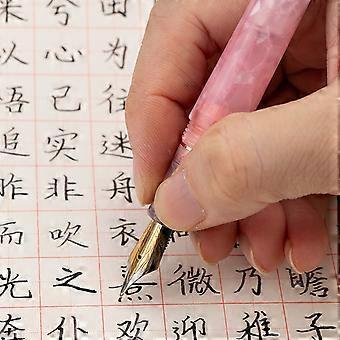 来兮田
以心为
悟己往
追实迷
昨非舟
而吹衣
光之熹微乃瞻
奔仆欢迎稚子